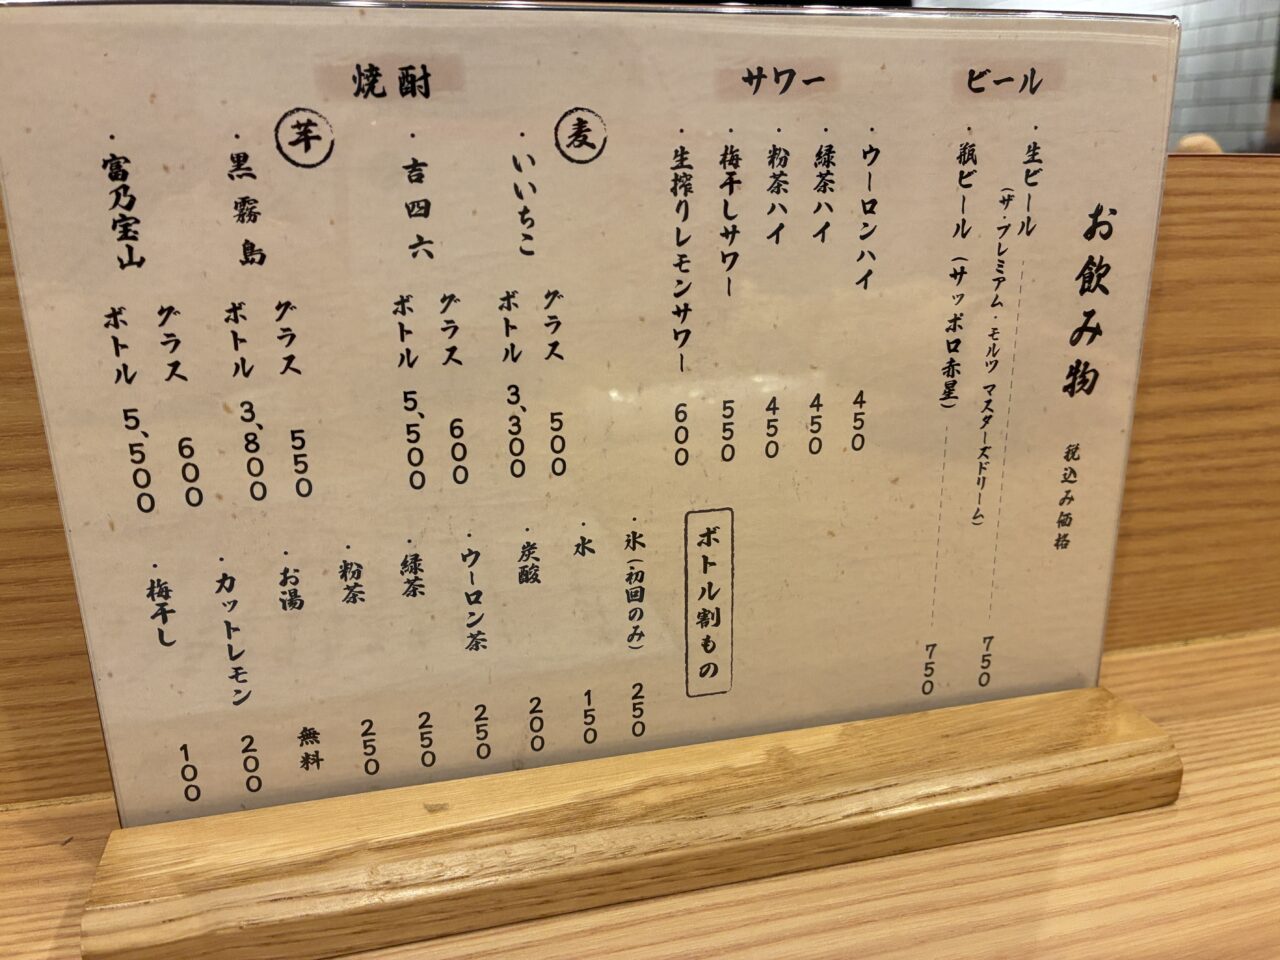 お飲み物 税込み価格
ビール
・生ビール
(ザ・プレミアム・モルツ マスターズドリーム) 750
・瓶ビール(サッポロ赤星) 750
サワー
・ウーロンハイ 450
・緑茶ハイ 450
・粉茶ハイ 450
・梅干しサワー 550
・生搾りレモンサワー 600
焼酎
麦
・いいちこ
グラス 500
ボトル 3,300
・吉四六
グラス 600
ボトル 5,500
芋
・黒霧島
グラス 550
ボトル 3,800
・富乃宝山
グラス 600
ボトル 5,500
ボトル割もの
・氷(初回のみ) 250
・水 150
・炭酸 200
・ウーロン茶 250
・緑茶 250
・粉茶 250
・お湯 無料
・カットレモン 200
・梅干し 100